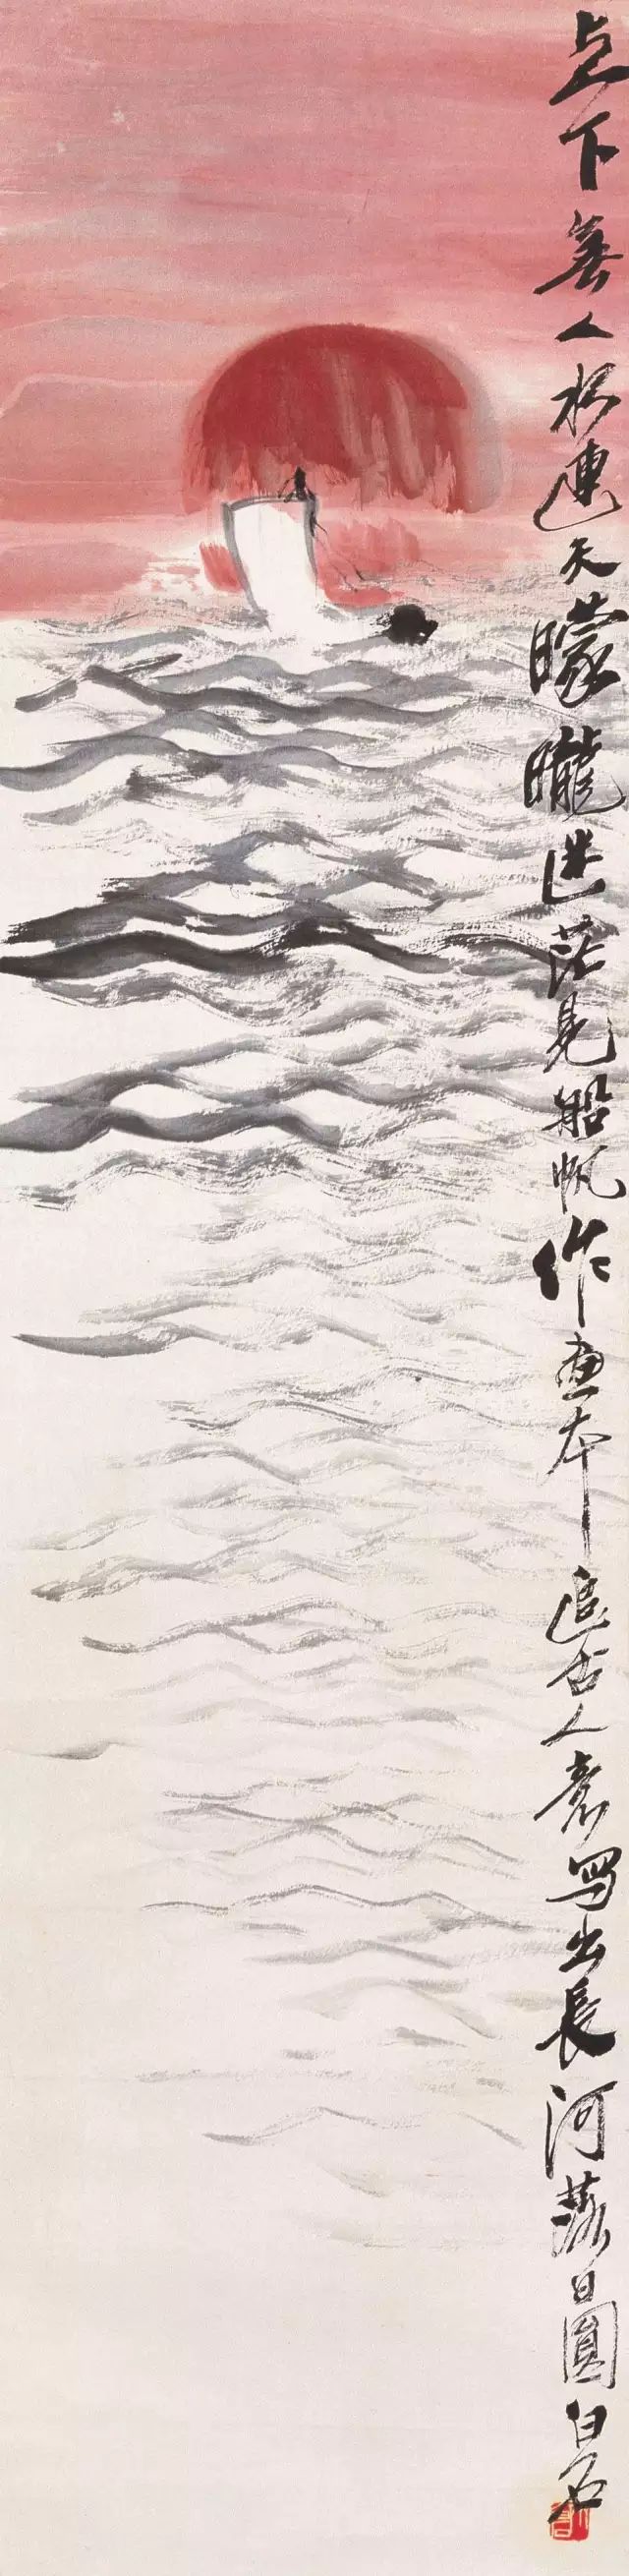 下無人水連天曚曨迷茫見船帆作畫本追古人意寫出長河落日圓白石